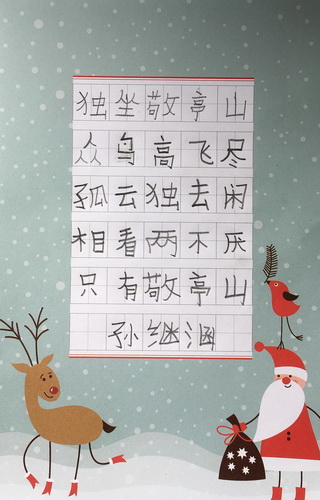 独坐敬亭山
众鸟高飞尽
孤云独去闲
相看两不厌
只有敬亭山
孙继涵